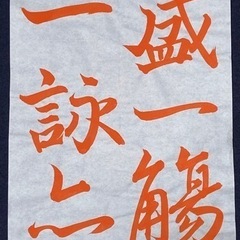 盛一觴
一詠亦